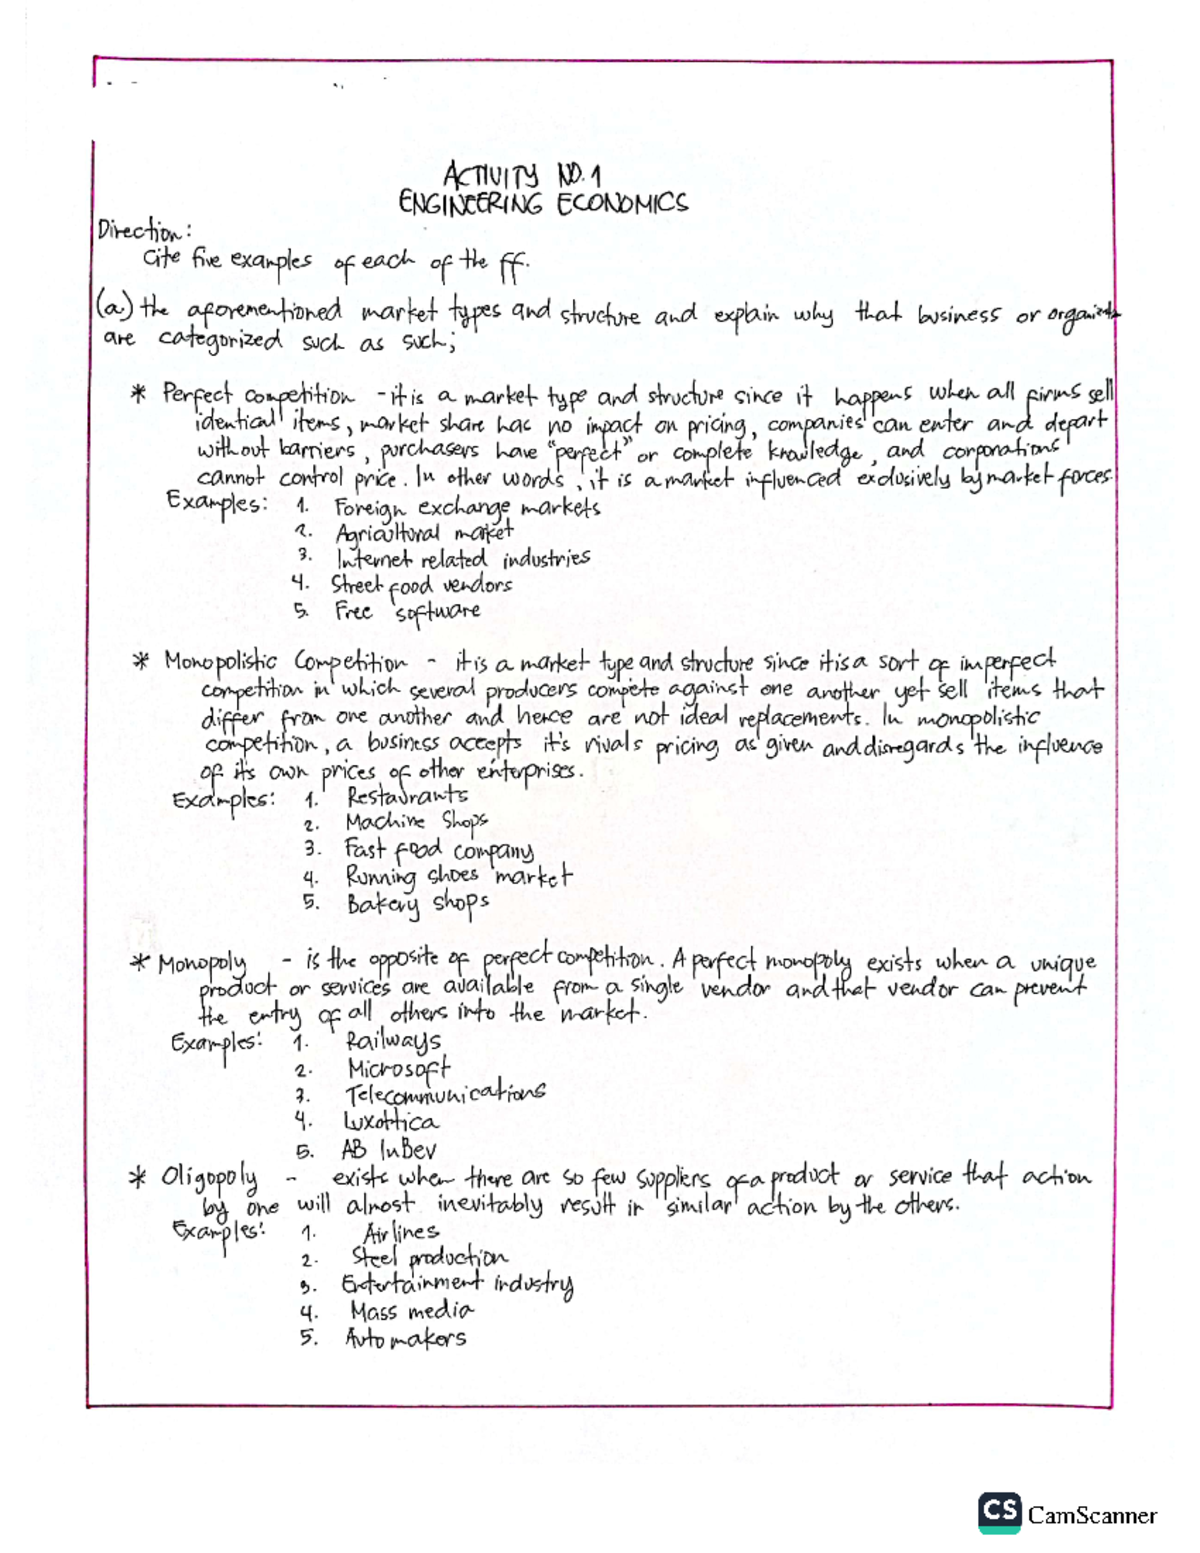 ACTIVITY NO.1
ENGINEERING ECONOMICS
Direction:
Cite five examples of each of the ff.
(a) the aforementioned market types and structure and explain why that business or
are categorized such as such;
* Perfect competition - it is a market type and structure since it happens when all firms sell
identical items, market share has no impact on pricing, companies can enter and depart
without barriers, purchasers have "perfect" or complete knowledge, and corporations
cannot control price. In other words, it is a market influenced exclusively by market forces.
Examples: 1. Foreign exchange markets
2. Agricultural market
3. Internet related industries
4. Street food vendors
5. Free software
* Monopolistic Competition - it is a market type and structure since it is a sort of imperfect
competition in which several producers compete against one another yet sell items that
differ from one another and hence are not ideal replacements. In monopolistic
competition, a business accepts it's rivals pricing as given and disregards the influence
of its own prices of other enterprises.
Examples: 1. Restaurants
2. Machine Shops
3. Fast food company
4. Running shoes market
5. Bakery shops
* Monopoly - is the opposite of perfect competition. A perfect monopoly exists when a unique
product or services are available from a single vendor and that vendor can prevent
the entry of all others into the market.
Examples: 1. Railways
2. Microsoft
3. Telecommunications
4. Luxottica
5. AB InBev
* Oligopoly - exists when there are so few suppliers of a product or service that action
by one will almost inevitably result in similar action by the others.
Examples: 1. Airlines
2. Steel production
3. Entertainment industry
4. Mass media
5. Auto makers
CS CamScanner